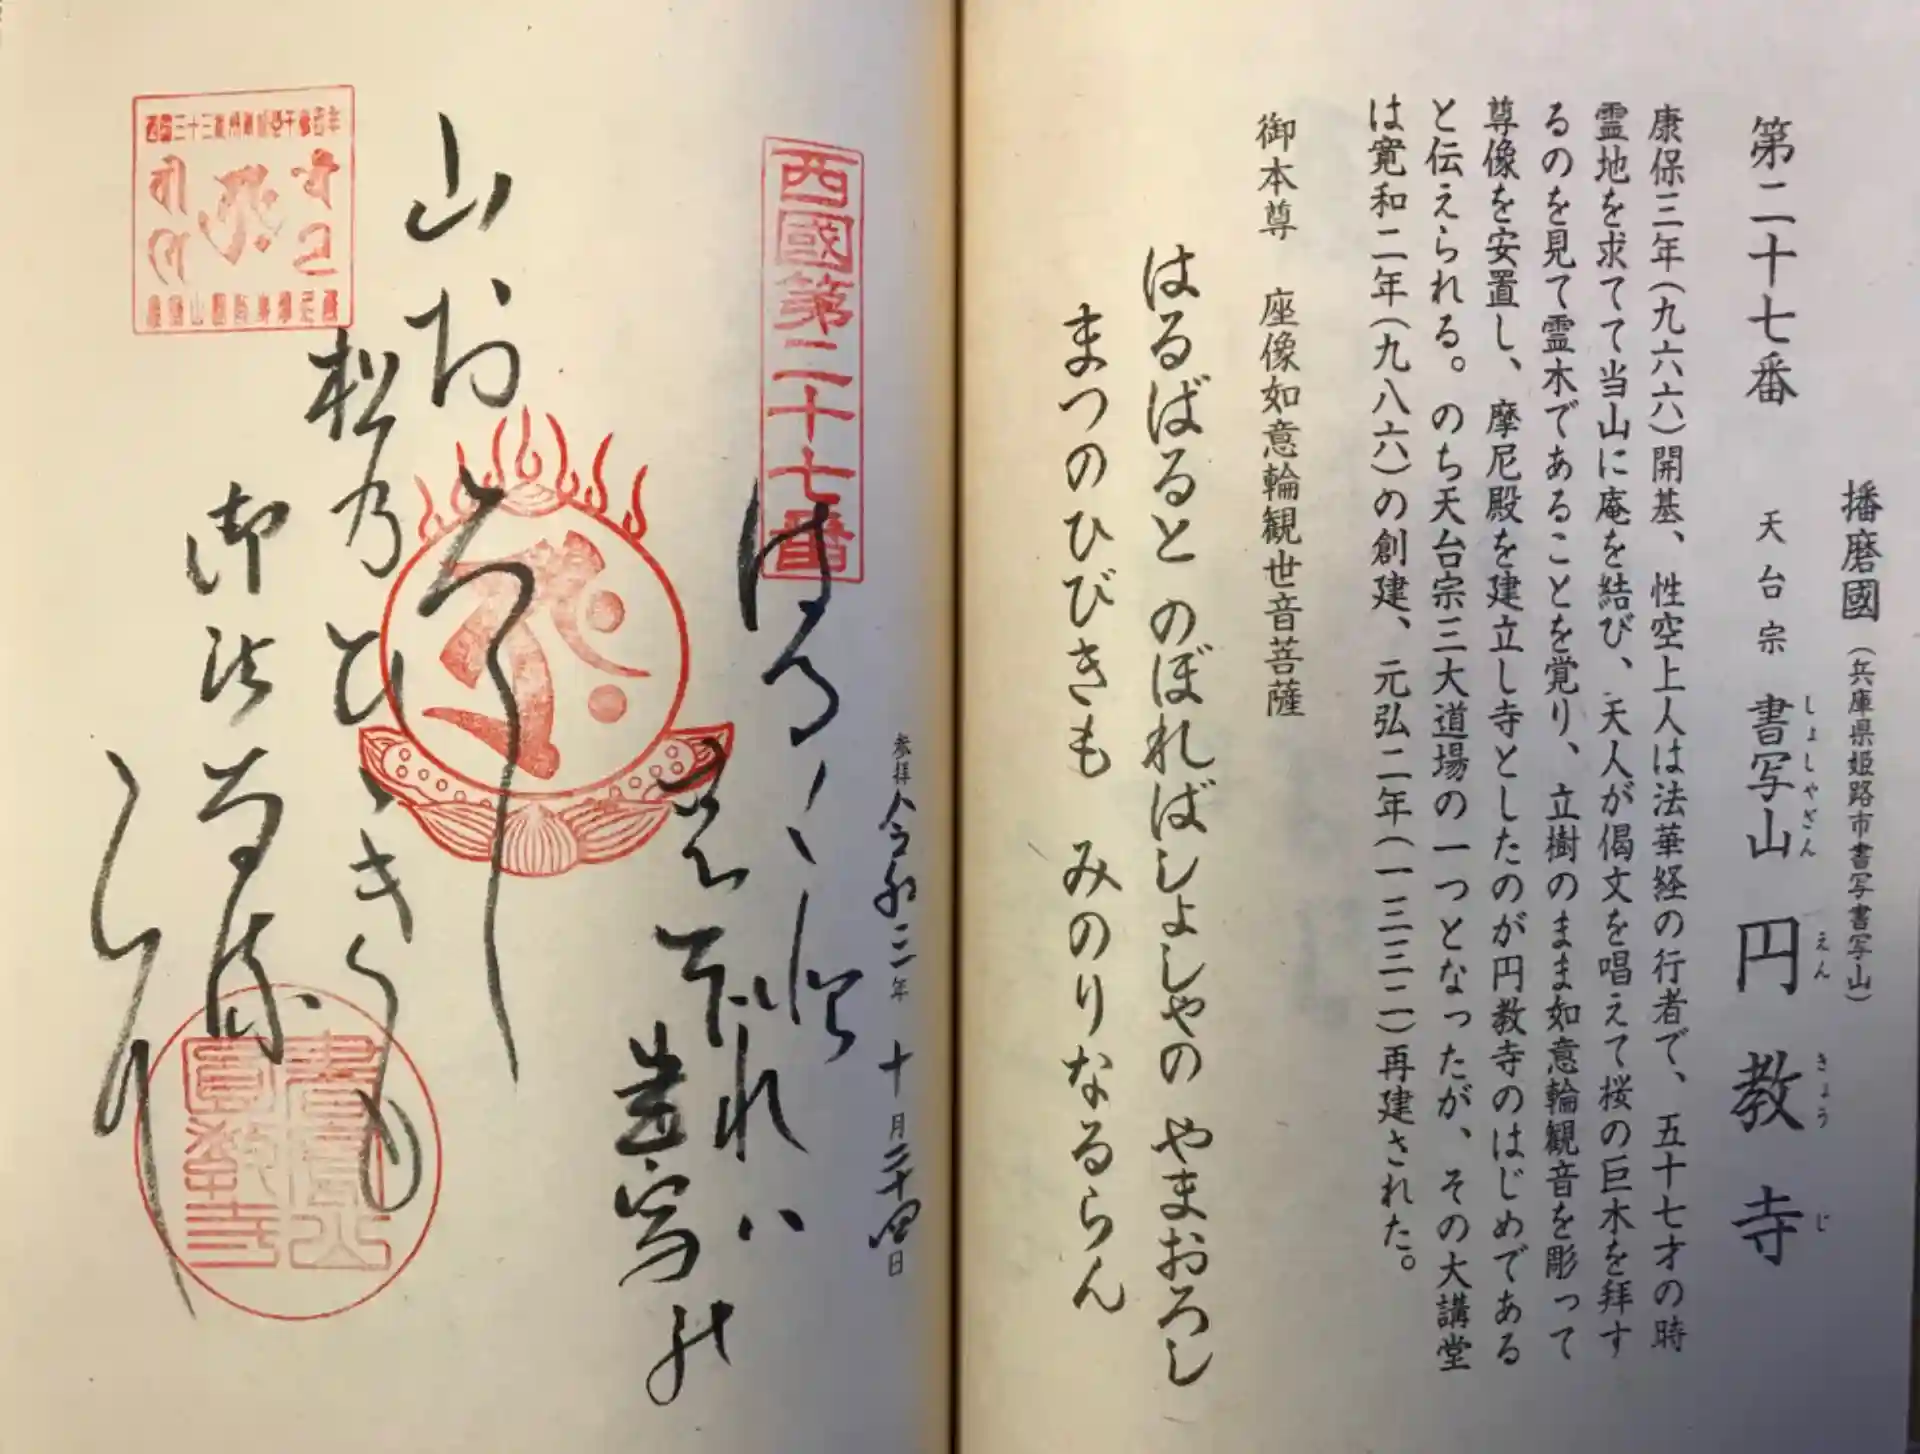 播磨國（兵庫県姫路市書写書写山）
第二十七番 天台宗 書写山 円教寺
しょしゃざん えんきょうじ
康保三年（九六六）開基、性空上人は法華経の行者で、五十七才の時
霊地を求てて当山に庵を結び、天人が偈文を唱えて桜の巨木を拝す
るのを見て霊木であることを覚り、立樹のまま如意輪観音を彫って
尊像を安置し、摩尼殿を建立し寺としたのが円教寺のはじめである
と伝えられる。のち天台宗三大道場の一つとなったが、その大講堂
は寛和二年（九八六）の創建、元弘二年（一三三二）再建された。
御本尊 座像如意輪観世音菩薩
はるばると のぼればしょしゃの やまおろし
まつのひびきも みのりなるらん
参拝 令和三年 十月二十四日
西國第二十七番
はる〱と
登れハ
書写の
山おろし
松乃ひゝきも
御法なる
らん
書寫山
圓教寺